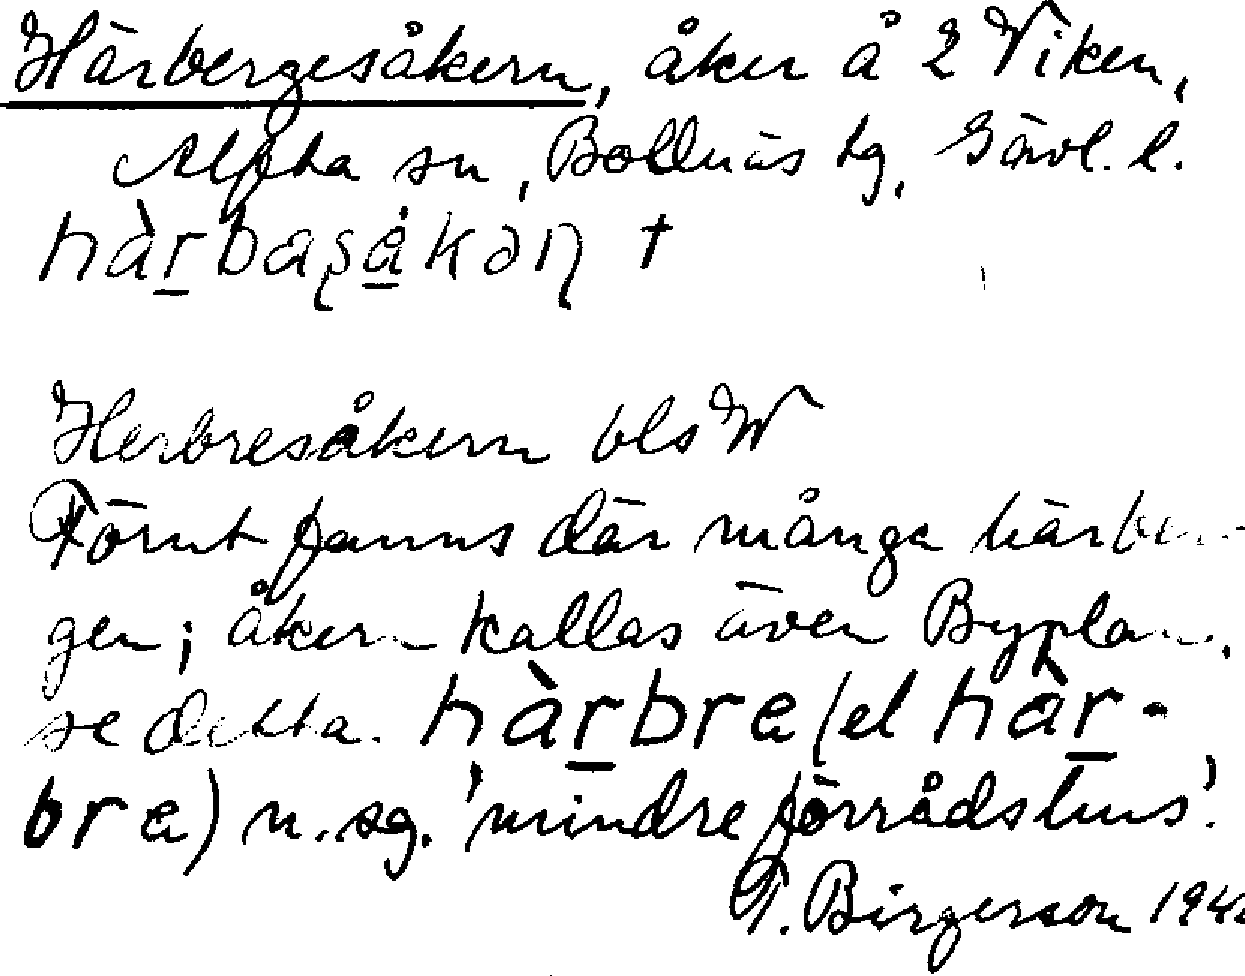 Härbergesåkern, åker å 2 Viken,
Alfta sn, Bollnäs tg, Gävl. l.
hàrbaʂåkəɳ †
Herbresåkern bls W
Förut fanns där många härber-
gen; åkern kallas även Byplan,
se detta. hàrbre (el hàr-
bre) n. sg. 'mindre förrådshus'.
T. Birgerson